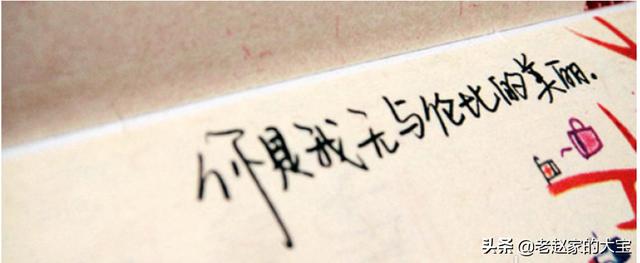 你是我无与伦比的美丽.
头条 @老赵家的大宝